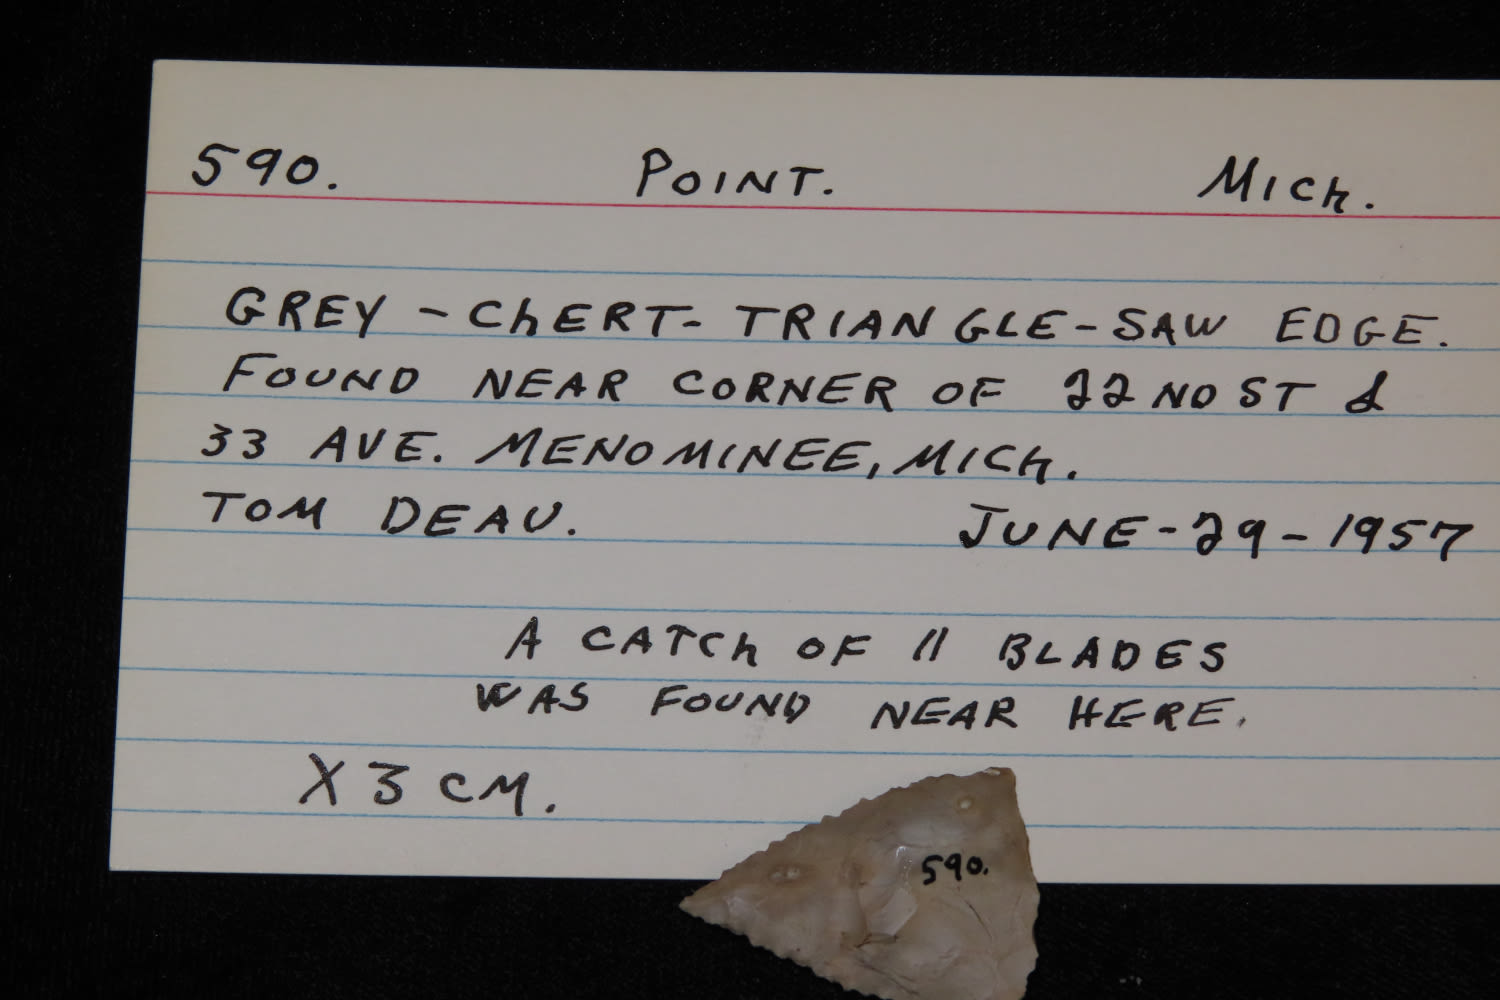 590. POINT. MICH.
GREY - CHERT - TRIANGLE - SAW EDGE.
FOUND NEAR CORNER OF 22ND ST &
33 AVE. MENOMINEE, MICH.
TOM DEAU. JUNE - 29 - 1957
A CATCH OF 11 BLADES
WAS FOUND NEAR HERE.
X 3 CM.
590.